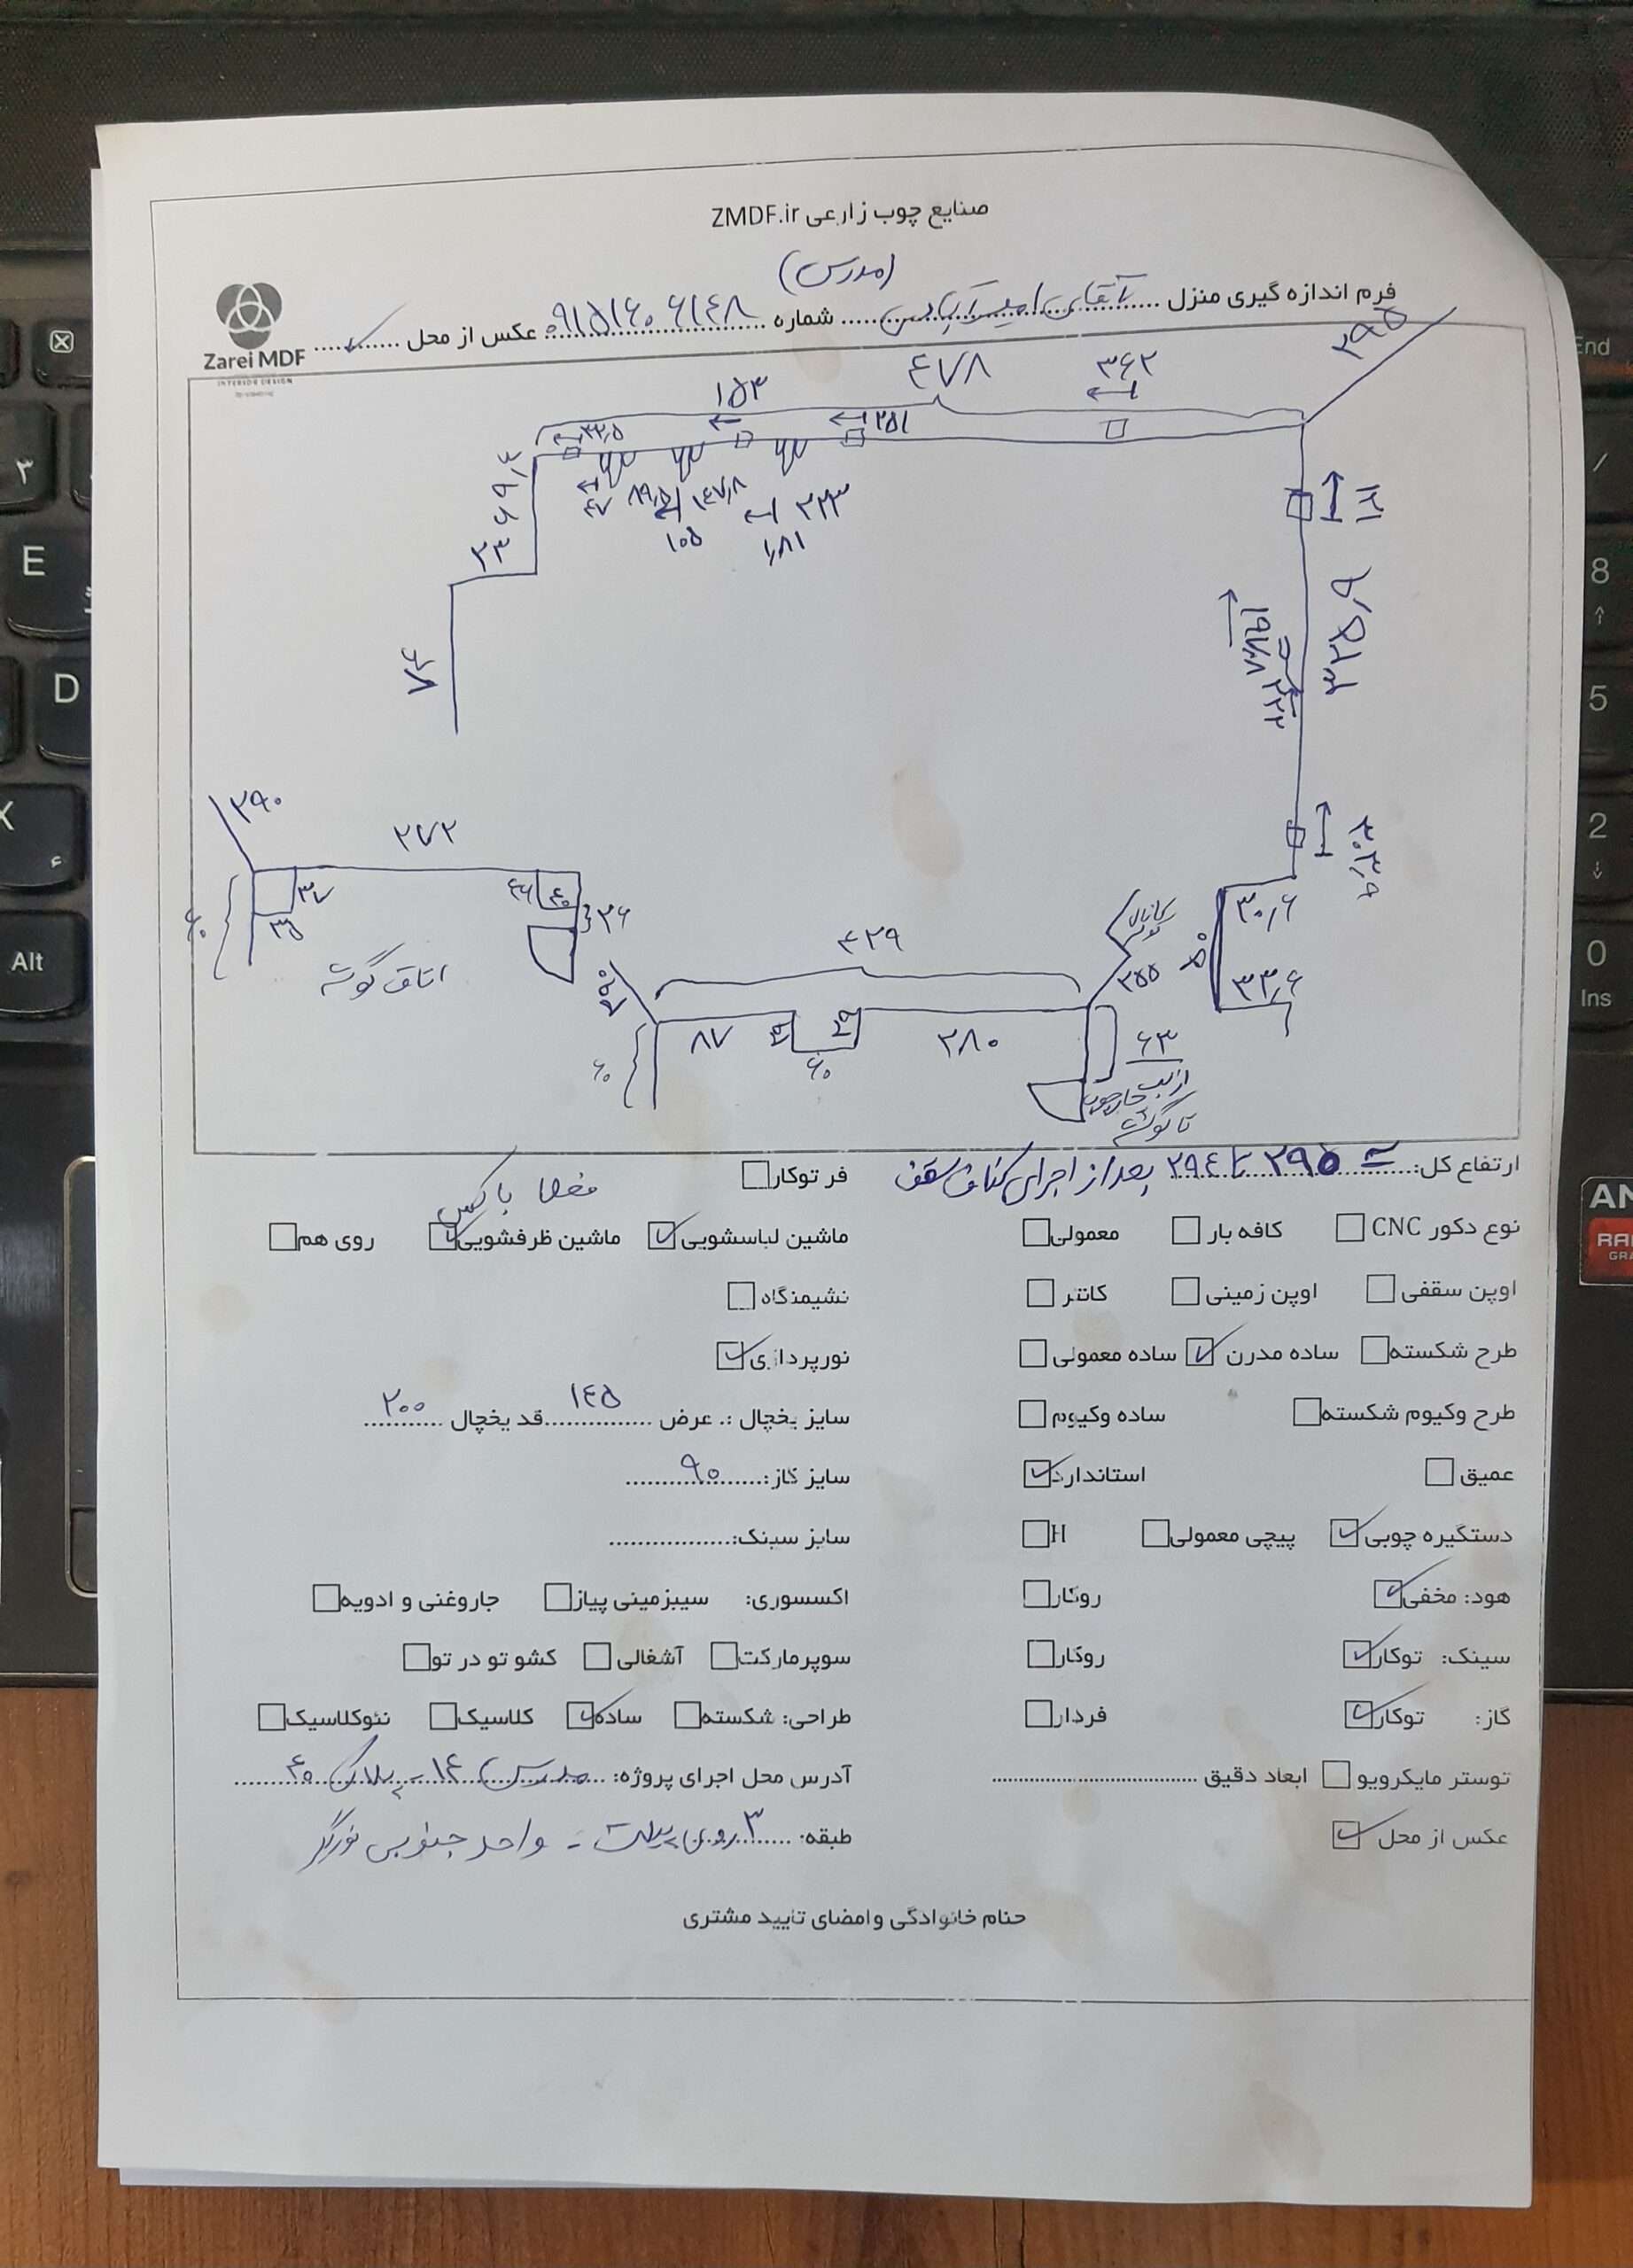 صنایع چوب زارعی ZMDF.ir
(مدرس)
فرم اندازه گیری منزل آقای شماره ۰۹۱۵۱۶۰۶۱۴۸ عکس از محل ✓
Zarei MDF
INTERIOR DESIGN
۲۹۵
۴۷۸
۳۶۲
۱۵۳
۲۵۱
۳۲٫۵
۶۹٫۳
۴۷
۸۹٫۵
۱۴۷٫۸
۲۲۳
۱۰۵
۱۸۱
۲۳
۷۴
۱۲۱
۳۲۵٫۹
۱۹۷٫۸
۲۲۲
۳۰۳٫۹
۳۰٫۶
۵۰
۳۳٫۶
۲۹۰
۲۷۲
۳۷
۳۵
۶۰
۴۶
۴۰
۲۶
اتاق گوشه
۴۲۹
۲۵۵
کانال کولر
۸۷
۶۰
۲۸۰
۶۰
۶۳
از لب چارچوب
تا گوشه
ارتفاع کل: ۲۹۵ تا ۲۹۴ بعد از اجرای کناف سقف
فر توکار
فعلا باکس
نوع دکور CNC کافه بار معمولی
ماشین لباسشویی ✓ ماشین ظرفشویی ✓ روی هم
اوپن سقفی اوپن زمینی کانتر
نشیمنگاه
طرح شکسته ساده مدرن ✓ ساده معمولی
نورپردازی ✓
طرح وکیوم شکسته ساده وکیوم
سایز یخچال :. عرض ۱۴۵ قد یخچال ۲۰۰
عمیق استاندارد ✓
سایز گاز: ۹۰
دستگیره چوبی ✓ پیچی معمولی H
سایز سینک:
هود: مخفی ✓ روکار
اکسسوری: سیبزمینی پیاز جاروغنی و ادویه
سینک: توکار ✓ روکار
سوپرمارکت آشغالی کشو تو در تو
گاز: توکار ✓ فردار
طراحی: شکسته ساده ✓ کلاسیک نئوکلاسیک
توستر مایکرویو ابعاد دقیق
آدرس محل اجرای پروژه: مدرس ۱۴ - پلاک ۴۰
عکس از محل ✓
طبقه: ۳ روی پیلوت - واحد جنوبی نورگیر
حنام خانوادگی و امضای تایید مشتری
End
۳
E
8
D
5
X
2
Alt
0
Ins